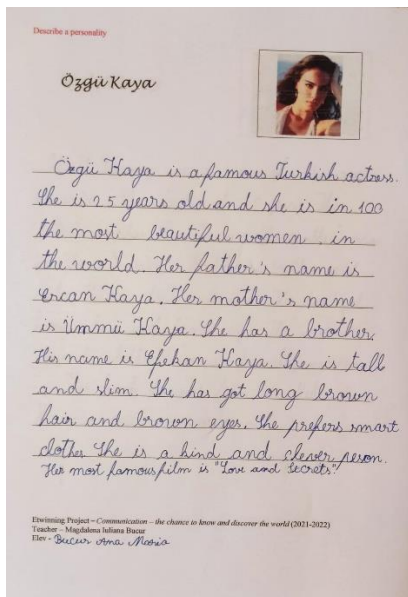 Describe a personality
Özgü Kaya
Özgü Kaya is a famous Turkish actress.
She is 25 years old and she is in 100
the most beautiful women in
the world. Her father's name is
Ercan Kaya. Her mother's name
is Ümmü Kaya. She has a brother.
His name is Efekan Kaya. She is tall
and slim. She has got long brown
hair and brown eyes. She prefers smart
clothes. She is a kind and clever peson.
Her most famous film is "Love and Secrets".
Etwinning Project – Communication – the chance to know and discover the world (2021-2022)
Teacher – Magdalena Iuliana Bucur
Elev - Bucur Ana Maria